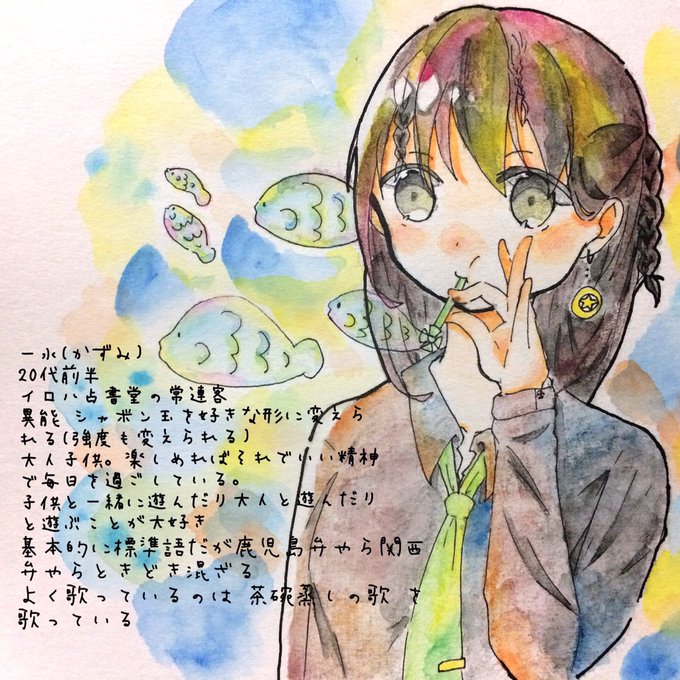 一水(かずみ)
20代前半
イロハ占書堂の常連客
異能 シャボン玉を好きな形に変えら
れる(強度も変えられる)
大人子供。楽しめればそれでいい精神
で毎日を過ごしている。
子供と一緒に遊んだり大人と遊んだり
と遊ぶことが大好き
基本的に標準語だが鹿児島弁やら関西
弁やらときどき混ざる
よく歌っているのは 茶碗蒸しの歌 を
歌っている